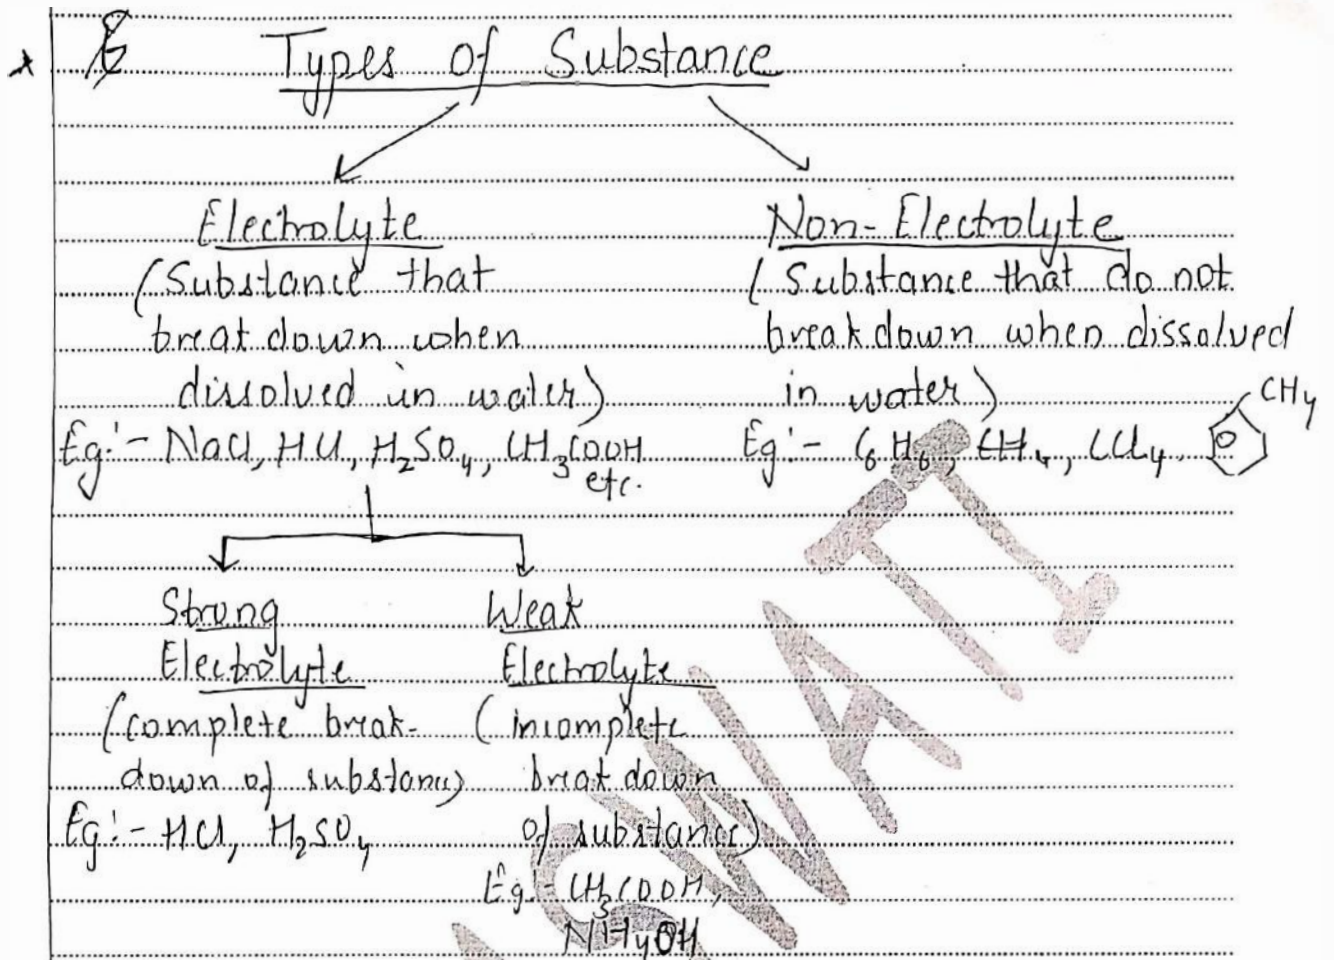 Types of Substance
Electrolyte
(Substance that
break down when
dissolved in water)
Eg:- NaCl, HCl, H₂SO₄, CH₃COOH
etc.
Non-Electrolyte
(Substance that do not
break down when dissolved
in water)
Eg:- C₆H₆, CH₄, CCl₄,
CH₄
Strong
Electrolyte
(complete break-
down of substance)
Eg:- HCl, H₂SO₄
Weak
Electrolyte
(incomplete
break down
of substance)
Eg:- CH₃COOH,
NH₄OH